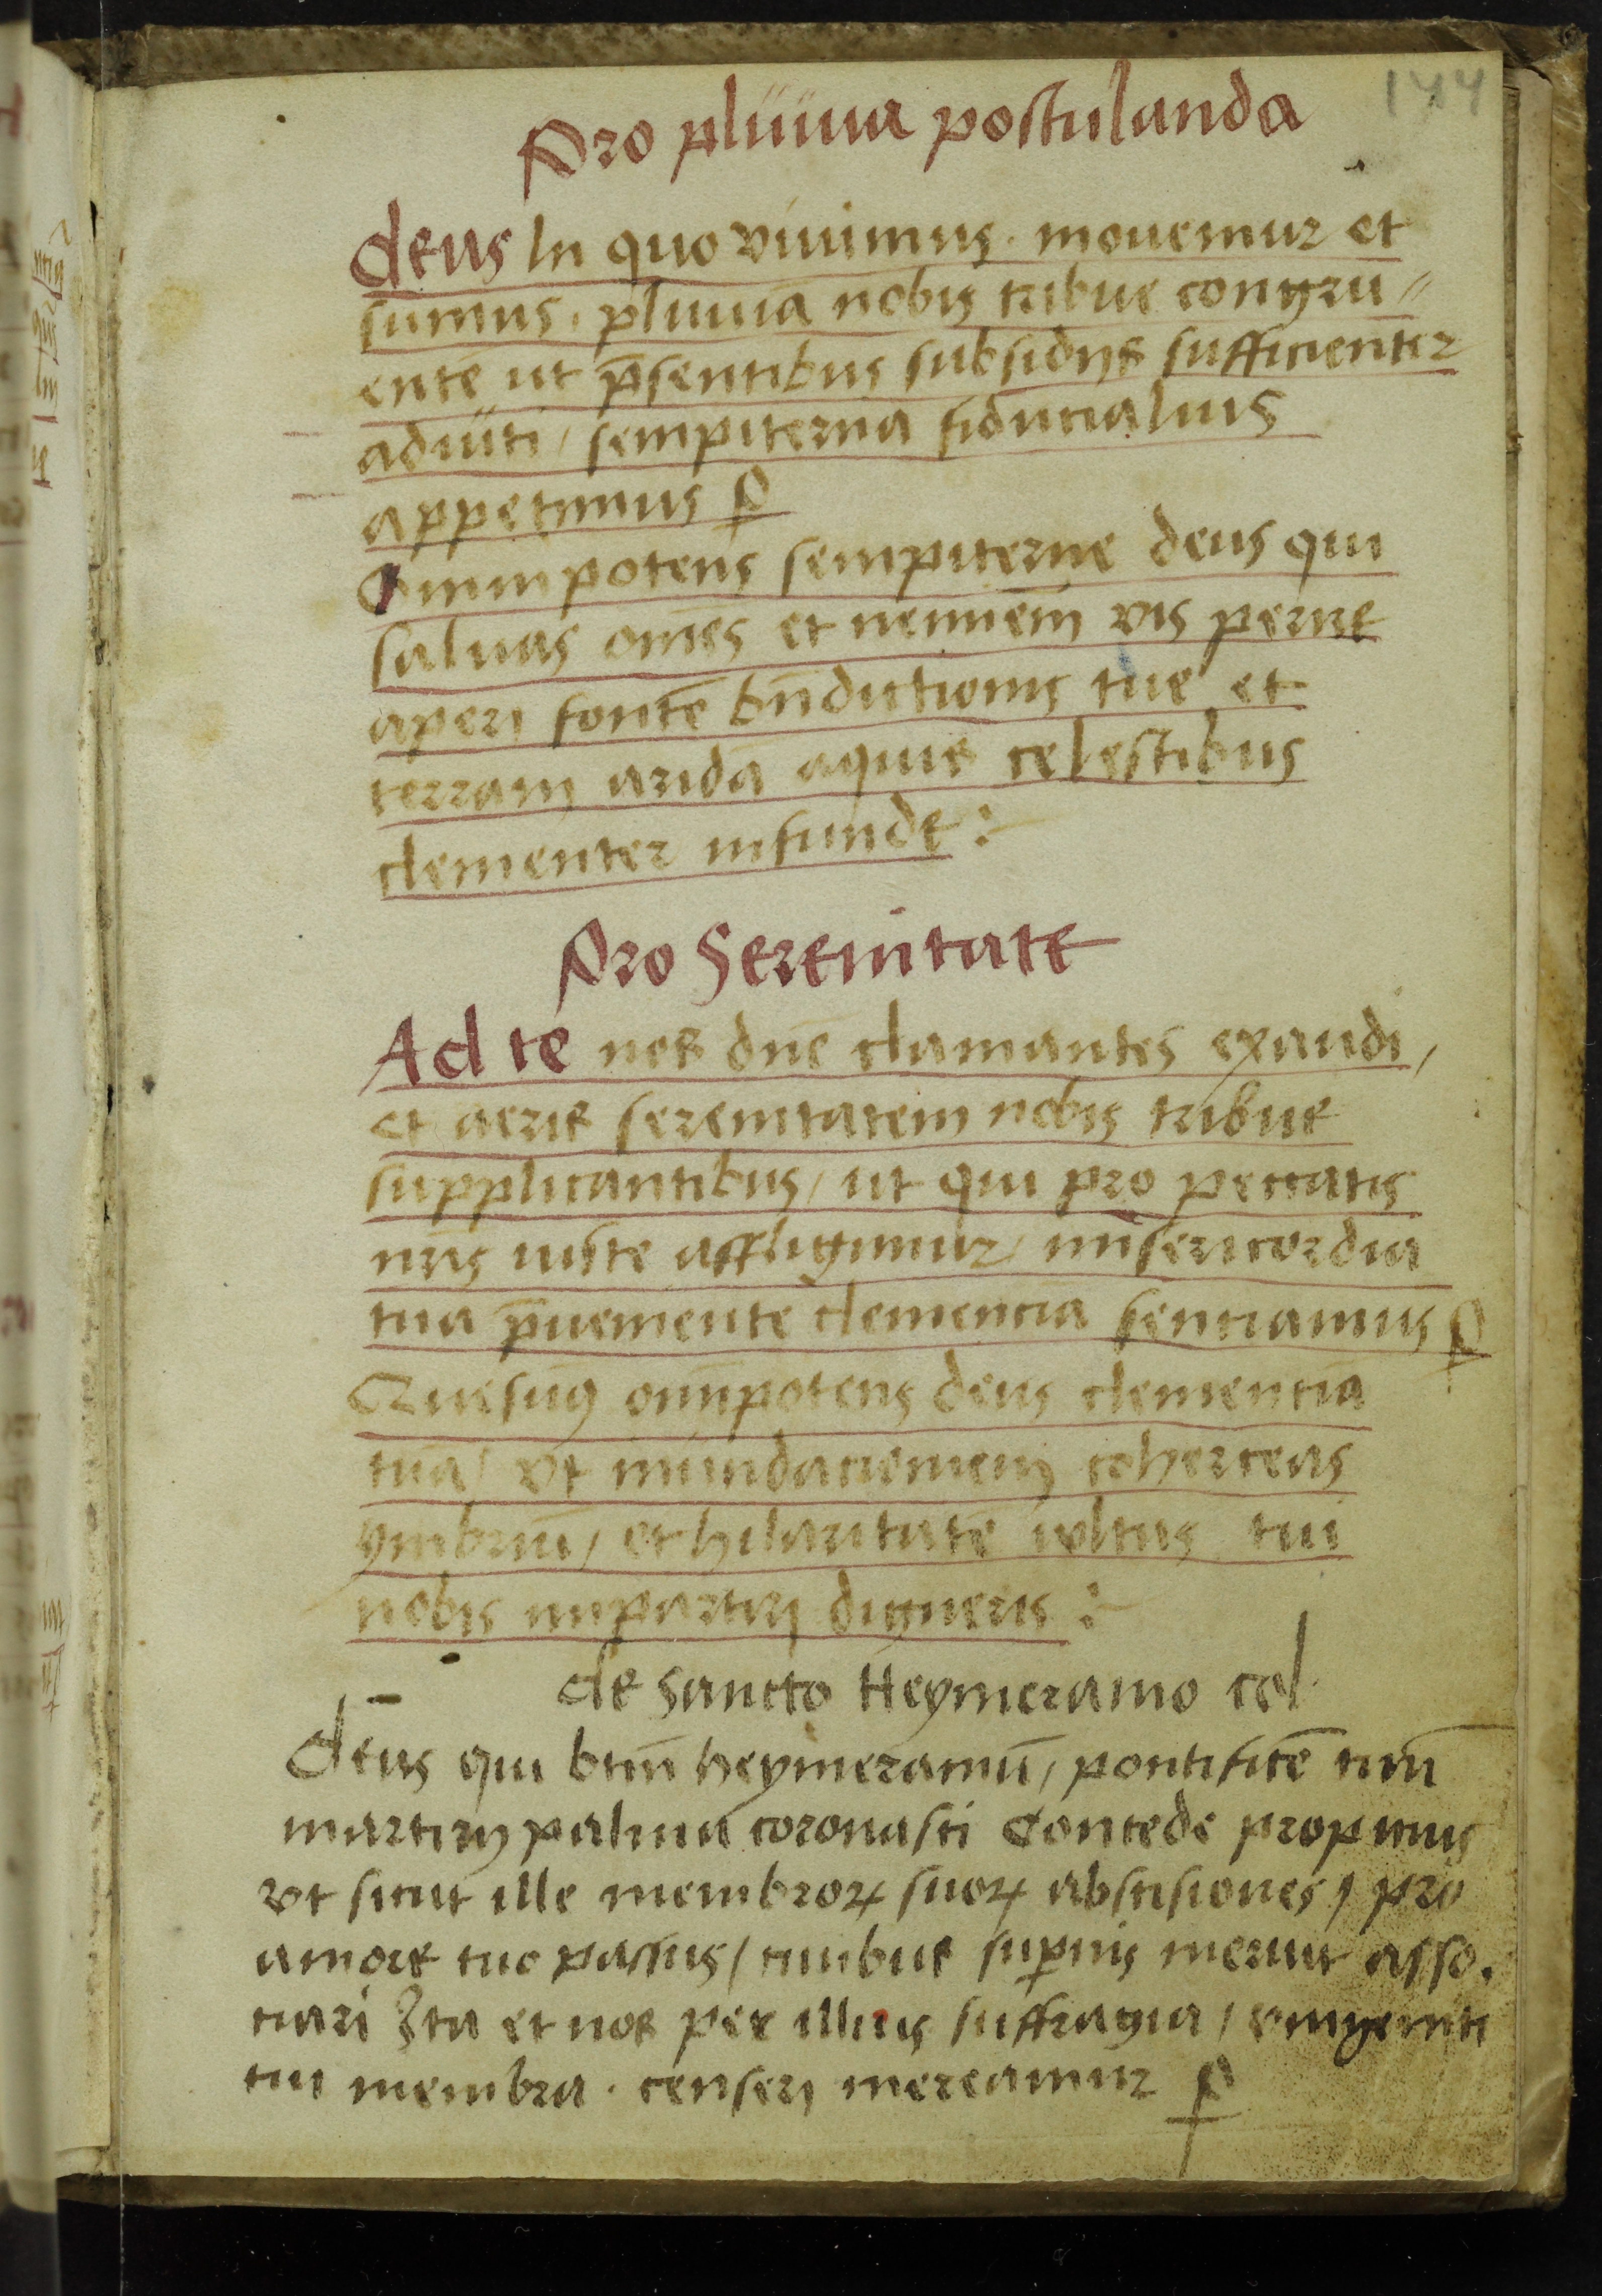 144
Pro pluuia postulanda
Deus In quo viuimus . mouemur et
sumus . pluuiā nobis tribue congru //
entē ut p̄sentibus subsidijs sufficienter
adiuti / sempiterna fiducialius
appetimus P
Omnipotens sempiterne deus qui
saluas om̄es et neminem vis perire
aperi fontē bn̄dictionis tue et
terram aridā aquis celestibus
clementer infunde :
Pro Serenitate
Ad te nos dn̄e clamantes exaudi /
et aeris serenitatem nobis tribue
supplicantibus / ut qui pro peccatis
nr̄is iuste affligimur / misericordia
tua p̄ueniente clementiā sentiamus P
Quesumꝯ omnipotens deus clementiā
tuā / vt inundacionem cohercens
ymbriū / et hilaritatē vultus tui
nobis impartiri digneris :
de Sancto Heymeramo col
Deus qui btm̄ heymeramū / pontificē tuū
martirij palma coronasti Concede propitius
vt sicut ille membroꝝ suoꝝ abscisiones / pro
amore tuo passus / ciuibus suꝑnis meruit asso .
ciari Ita et nos per illius suffragia / vnigeniti
tui membra . censeri mereamur P